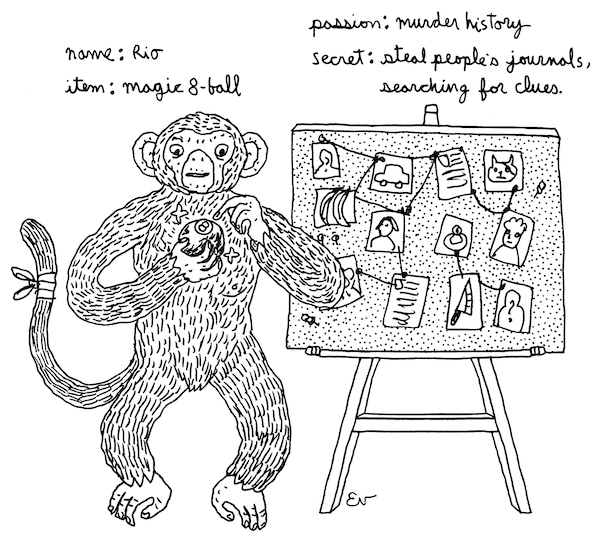 name: Rio
item: magic 8-ball
passion: murder history
secret: steal people's journals,
searching for clues.
8
?
Ev